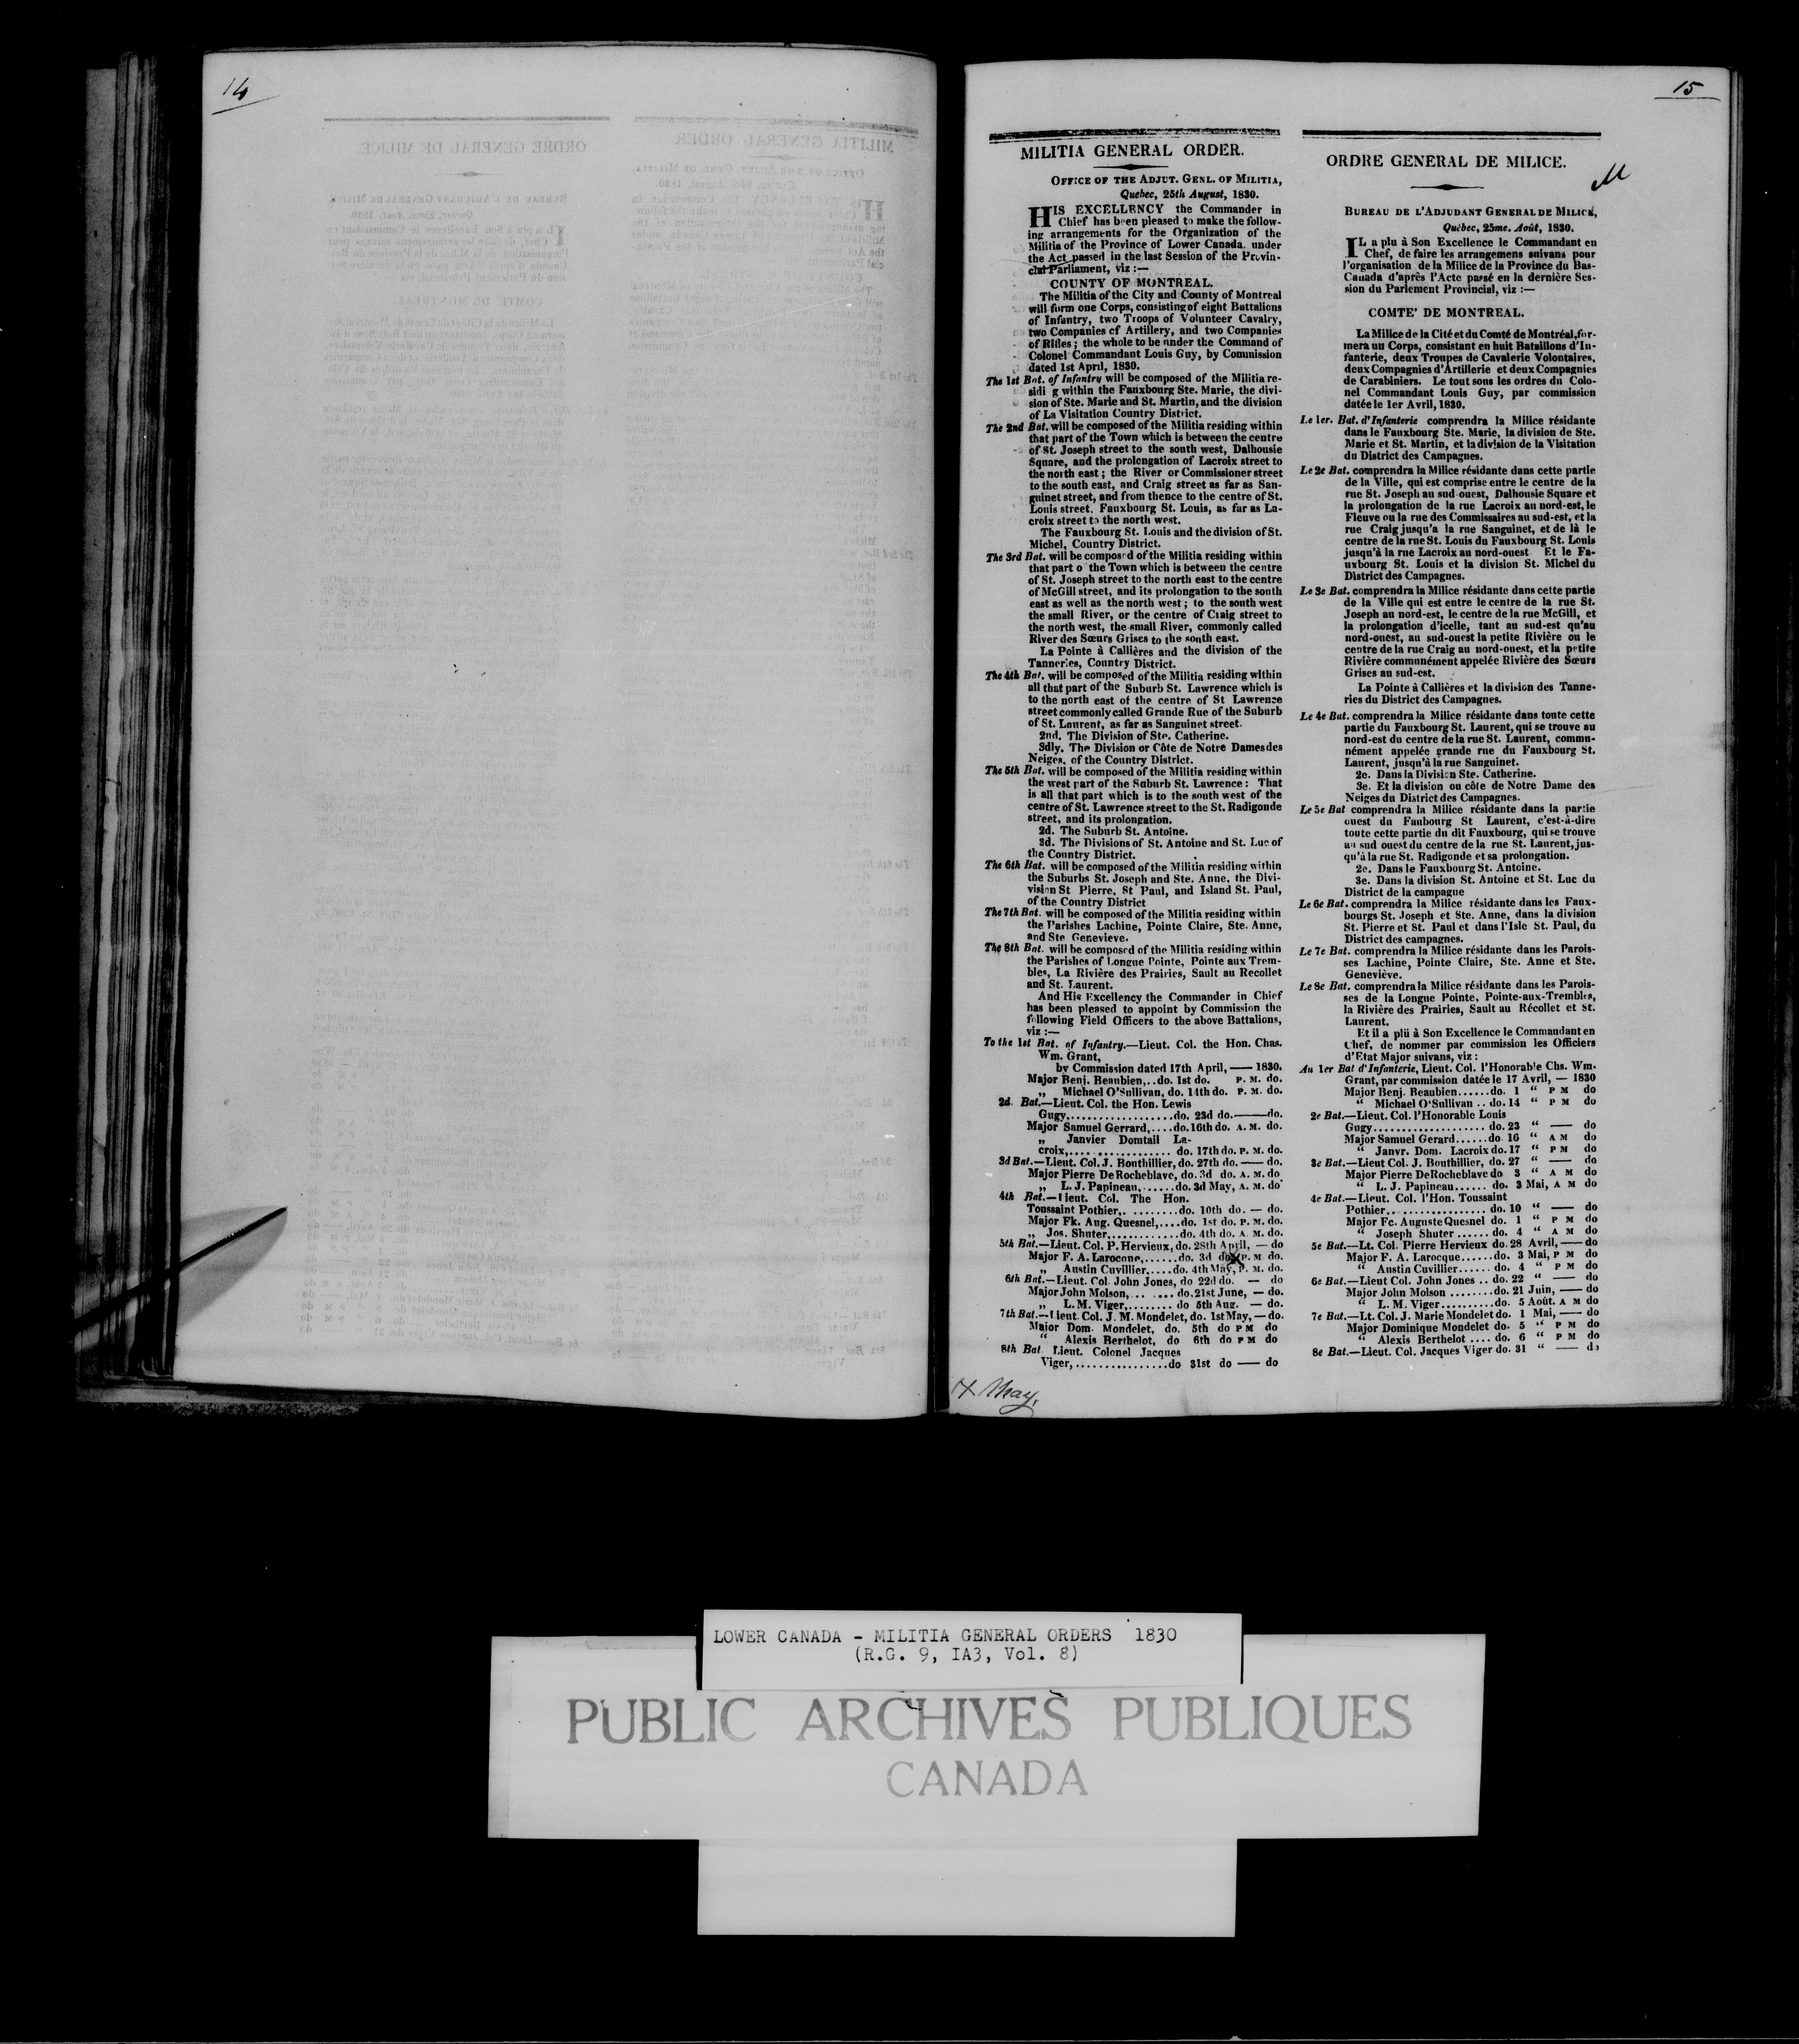 14
15
MILITIA GENERAL ORDER.
OFFICE OF THE ADJUT. GENL. OF MILITIA,
Quebec, 25th August, 1830.
HIS EXCELLENCY the Commander in
Chief has been pleased to make the follow-
ing arrangements for the Organization of the
Militia of the Province of Lower Canada. under
the Act passed in the last Session of the Provin-
cial Parliament, viz :—
COUNTY OF MONTREAL.
The Militia of the City and County of Montreal
will form one Corps, consisting of eight Battalions
of Infantry, two Troops of Volunteer Cavalry,
two Companies of Artillery, and two Companies
of Rifles ; the whole to be under the Command of
Colonel Commandant Louis Guy, by Commission
dated 1st April, 1830.
The 1st Bat. of Infantry will be composed of the Militia re-
sidi g within the Fauxbourg Ste. Marie, the divi-
sion of Ste. Marie and St. Martin, and the division
of La Visitation Country District.
The 2nd Bat. will be composed of the Militia residing within
that part of the Town which is between the centre
of St. Joseph street to the south west, Dalhousie
Square, and the prolongation of Lacroix street to
the north east ; the River or Commissioner street
to the south east, and Craig street as far as San-
guinet street, and from thence to the centre of St.
Louis street, Fauxbourg St. Louis, as far as La-
croix street to the north west.
The Fauxbourg St. Louis and the division of St.
Michel, Country District.
The 3rd Bat. will be composed of the Militia residing within
that part o the Town which is between the centre
of St. Joseph street to the north east to the centre
of McGill street, and its prolongation to the south
east as well as the north west ; to the south west
the small River, or the centre of Craig street to
the north west, the small River, commonly called
River des Sœurs Grises to the south east.
La Pointe à Callières and the division of the
Tanneries, Country District.
The 4th Bat. will be composed of the Militia residing within
all that part of the Suburb St. Lawrence which is
to the north east of the centre of St Lawrence
street commonly called Grande Rue of the Suburb
of St. Laurent, as far as Sanguinet street.
2nd. The Division of Ste. Catherine.
3dly. The Division or Côte de Notre Dames des
Neiges, of the Country District.
The 5th Bat. will be composed of the Militia residing within
the west part of the Suburb St. Lawrence : That
is all that part which is to the south west of the
centre of St. Lawrence street to the St. Radigonde
street, and its prolongation.
2d. The Suburb St. Antoine.
3d. The Divisions of St. Antoine and St. Luc of
the Country District.
The 6th Bat. will be composed of the Militia residing within
the Suburbs St. Joseph and Ste. Anne, the Divi-
vision St Pierre, St Paul, and Island St. Paul,
of the Country District
The 7th Bat. will be composed of the Militia residing within
the Parishes Lachine, Pointe Claire, Ste. Anne,
and Ste Genevieve.
The 8th Bat. will be composed of the Militia residing within
the Parishes of Longue Pointe, Pointe aux Trem-
bles, La Rivière des Prairies, Sault au Recollet
and St. Laurent.
And His Excellency the Commander in Chief
has been pleased to appoint by Commission the
following Field Officers to the above Battalions,
viz :—
To the 1st Bat. of Infantry.—Lieut. Col. the Hon. Chas.
Wm. Grant,
by Commission dated 17th April, — 1830.
Major Benj. Beaubien,..do. 1st do. P. M. do.
„ Michael O'Sullivan, do. 14th do. P. M. do.
2d. Bat.—Lieut. Col. the Hon. Lewis
Gugy,..................do. 23d do.——do.
Major Samuel Gerrard,....do. 16th do. A. M. do.
„ Janvier Domtail La-
croix,................. do. 17th do. P. M. do.
3d Bat.—Lieut. Col. J. Bouthillier, do. 27th do. — do.
Major Pierre DeRocheblave, do. 3d do. A. M. do
„ L. J. Papineau,......do. 3d May, A. M. do
4th Bat.—Lieut. Col. The Hon.
Toussaint Pothier,. ........do. 10th do. — do.
Major Fk. Aug. Quesnel,....do. 1st do. P. M. do.
„ Jos. Shuter.............do. 4th do. A. M. do.
5th Bat.—Lieut. Col. P. Hervieux, do. 28th April, — do
Major F. A. Larocque,......do. 3d do. P. M do.
„ Austin Cuvillier,....do. 4th May, P. M. do.
6th Bat.—Lieut. Col. John Jones, do 22d do. — do
Major John Molson,.. ....do. 21st June, — do.
„ L. M. Viger,........ do 5th Aug. — do.
7th Bat.—Lieut. Col. J. M. Mondelet, do. 1st May, — do.
Major Dom. Mondelet, do. 5th do P M do
“ Alexis Berthelot, do 6th do P M do
8th Bat. Lieut. Colonel Jacques
Viger,................do 31st do — do
X May,
ORDRE GENERAL DE MILICE.
M
BUREAU DE L'ADJUDANT GENERAL DE MILICE,
Québec, 25me. Août, 1830.
IL a plu à Son Excellence le Commandant en
Chef, de faire les arrangemens suivans pour
l'organisation de la Milice de la Province du Bas-
Canada d'après l'Acte passé en la dernière Ses-
sion du Parlement Provincial, viz :—
COMTE' DE MONTREAL.
La Milice de la Cité et du Comté de Montréal, for-
mera un Corps, consistant en huit Bataillons d'In-
fanterie, deux Troupes de Cavalerie Volontaires,
deux Compagnies d'Artillerie et deux Compagnies
de Carabiniers. Le tout sous les ordres du Colo-
nel Commandant Louis Guy, par commission
datée le 1er Avril, 1830.
Le 1er. Bat. d'Infanterie comprendra la Milice résidante
dans le Fauxbourg Ste. Marie, la division de Ste.
Marie et St. Martin, et la division de la Visitation
du District des Campagnes.
Le 2e Bat. comprendra la Milice résidante dans cette partie
de la Ville, qui est comprise entre le centre de la
rue St. Joseph au sud ouest, Dalhousie Square et
la prolongation de la rue Lacroix au nord-est, le
Fleuve ou la rue des Commissaires au sud-est, et la
rue Craig jusqu'a la rue Sanguinet, et de là le
centre de la rue St. Louis du Fauxbourg St. Louis
jusqu'à la rue Lacroix au nord-ouest Et le Fa-
uxbourg St. Louis et la division St. Michel du
District des Campagnes.
Le 3e Bat. comprendra la Milice résidante dans cette partie
de la Ville qui est entre le centre de la rue St.
Joseph au nord-est, le centre de la rue McGill, et
la prolongation d'icelle, tant au sud-est qu'au
nord-ouest, au sud-ouest la petite Rivière ou le
centre de la rue Craig au nord-ouest, et la petite
Rivière communément appelée Rivière des Sœurs
Grises au sud-est.
La Pointe à Callières et la division des Tanne-
ries du District des Campagnes.
Le 4e Bat. comprendra la Milice résidante dans toute cette
partie du Fauxbourg St. Laurent, qui se trouve au
nord-est du centre de la rue St. Laurent, commu-
nément appelée grande rue du Fauxbourg St.
Laurent, jusqu'à la rue Sanguinet.
2e. Dans la Division Ste. Catherine.
3e. Et la division ou côte de Notre Dame des
Neiges du District des Campagnes.
Le 5e Bat comprendra la Milice résidante dans la partie
ouest du Faubourg St Laurent, c'est-à-dire
toute cette partie du dit Fauxbourg, qui se trouve
au sud ouest du centre de la rue St. Laurent, jus-
qu'à la rue St. Radigonde et sa prolongation.
2e. Dans le Fauxbourg St. Antoine.
3e. Dans la division St. Antoine et St. Luc du
District de la campagne
Le 6e Bat. comprendra la Milice résidante dans les Faux-
bourgs St. Joseph et Ste. Anne, dans la division
St. Pierre et St. Paul et dans l'Isle St. Paul, du
District des campagnes.
Le 7e Bat. comprendra la Milice résidante dans les Parois-
ses Lachine, Pointe Claire, Ste. Anne et Ste.
Geneviève.
Le 8e Bat. comprendra la Milice résidante dans les Parois-
ses de la Longue Pointe, Pointe-aux-Trembles,
la Rivière des Prairies, Sault au Récollet et St.
Laurent.
Et il a plû à Son Excellence le Commandant en
Chef, de nommer par commission les Officiers
d'Etat Major suivans, viz :
Au 1er Bat d'Infanterie, Lieut. Col. l'Honorable Chs. Wm.
Grant, par commission datée le 17 Avril, — 1830
Major Benj. Beaubien......do. 1 “ P M do
“ Michael O'Sullivan .. do. 14 “ P M do
2e Bat.—Lieut. Col. l'Honorable Louis
Gugy.................... do. 23 “ — do
Major Samuel Gerard......do 16 “ A M do
“ Janvr. Dom. Lacroix do. 17 “ P M do
3e Bat.—Lieut Col. J. Bouthillier, do. 27 “ — do
Major Pierre DeRocheblave do 3 “ A M do
“ L. J. Papineau...... do. 3 Mai, A M do
4e Bat.—Lieut. Col. l'Hon. Toussaint
Pothier.................. do. 10 “ — do
Major Fc. Auguste Quesnel do. 1 “ P M do
“ Joseph Shuter ...... do. 4 “ A M do
5e Bat.—Lt. Col. Pierre Hervieux do. 28 Avril, — do
Major F. A. Larocque......do. 3 Mai, P M do
“ Austin Cuvillier...... do. 4 “ P M do
6e Bat.—Lieut Col. John Jones .. do. 22 “ — do
Major John Molson ........do. 21 Juin, — do
“ L. M. Viger..........do. 5 Août. A M do
7e Bat.—Lt. Col. J. Marie Mondelet do. 1 Mai, — do
Major Dominique Mondelet do. 5 “ P M do
“ Alexis Berthelot .... do. 6 “ P M do
8e Bat.—Lieut. Col. Jacques Viger do. 31 “ — do
LOWER CANADA - MILITIA GENERAL ORDERS 1830
(R.G. 9, IA3, Vol. 8)
PUBLIC ARCHIVES PUBLIQUES
CANADA